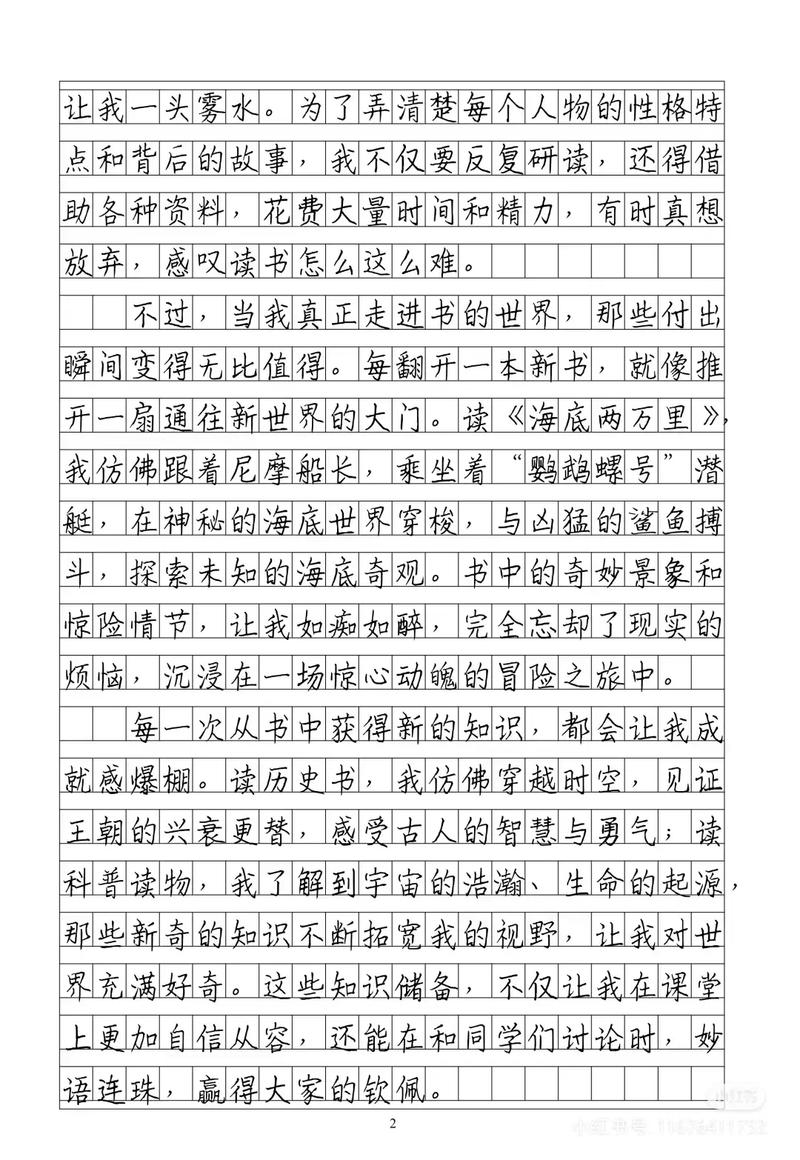 让我一头雾水。为了弄清楚每个人物的性格特
点和背后的故事，我不仅要反复研读，还得借
助各种资料，花费大量时间和精力，有时真想
放弃，感叹读书怎么这么难。
不过，当我真正走进书的世界，那些付出
瞬间变得无比值得。每翻开一本新书，就像推
开一扇通往新世界的大门。读《海底两万里》，
我仿佛跟着尼摩船长，乘坐着“鹦鹉螺号”潜
艇，在神秘的海底世界穿梭，与凶猛的鲨鱼搏
斗，探索未知的海底奇观。书中的奇妙景象和
惊险情节，让我如痴如醉，完全忘却了现实的
烦恼，沉浸在一场惊心动魄的冒险之旅中。
每一次从书中获得新的知识，都会让我成
就感爆棚。读历史书，我仿佛穿越时空，见证
王朝的兴衰更替，感受古人的智慧与勇气；读
科普读物，我了解到宇宙的浩瀚、生命的起源，
那些新奇的知识不断拓宽我的视野，让我对世
界充满好奇。这些知识储备，不仅让我在课堂
上更加自信从容，还能在和同学们讨论时，妙
语连珠，赢得大家的钦佩。
2
小红书
小红书号：11676411732